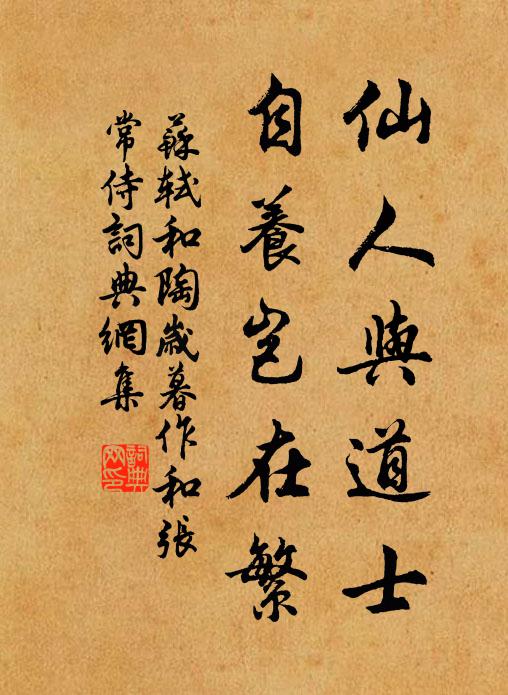 仙人與道士
自養豈在繁
蘇軾和陶歲暮作和張
常侍詞典網集
詞典網印